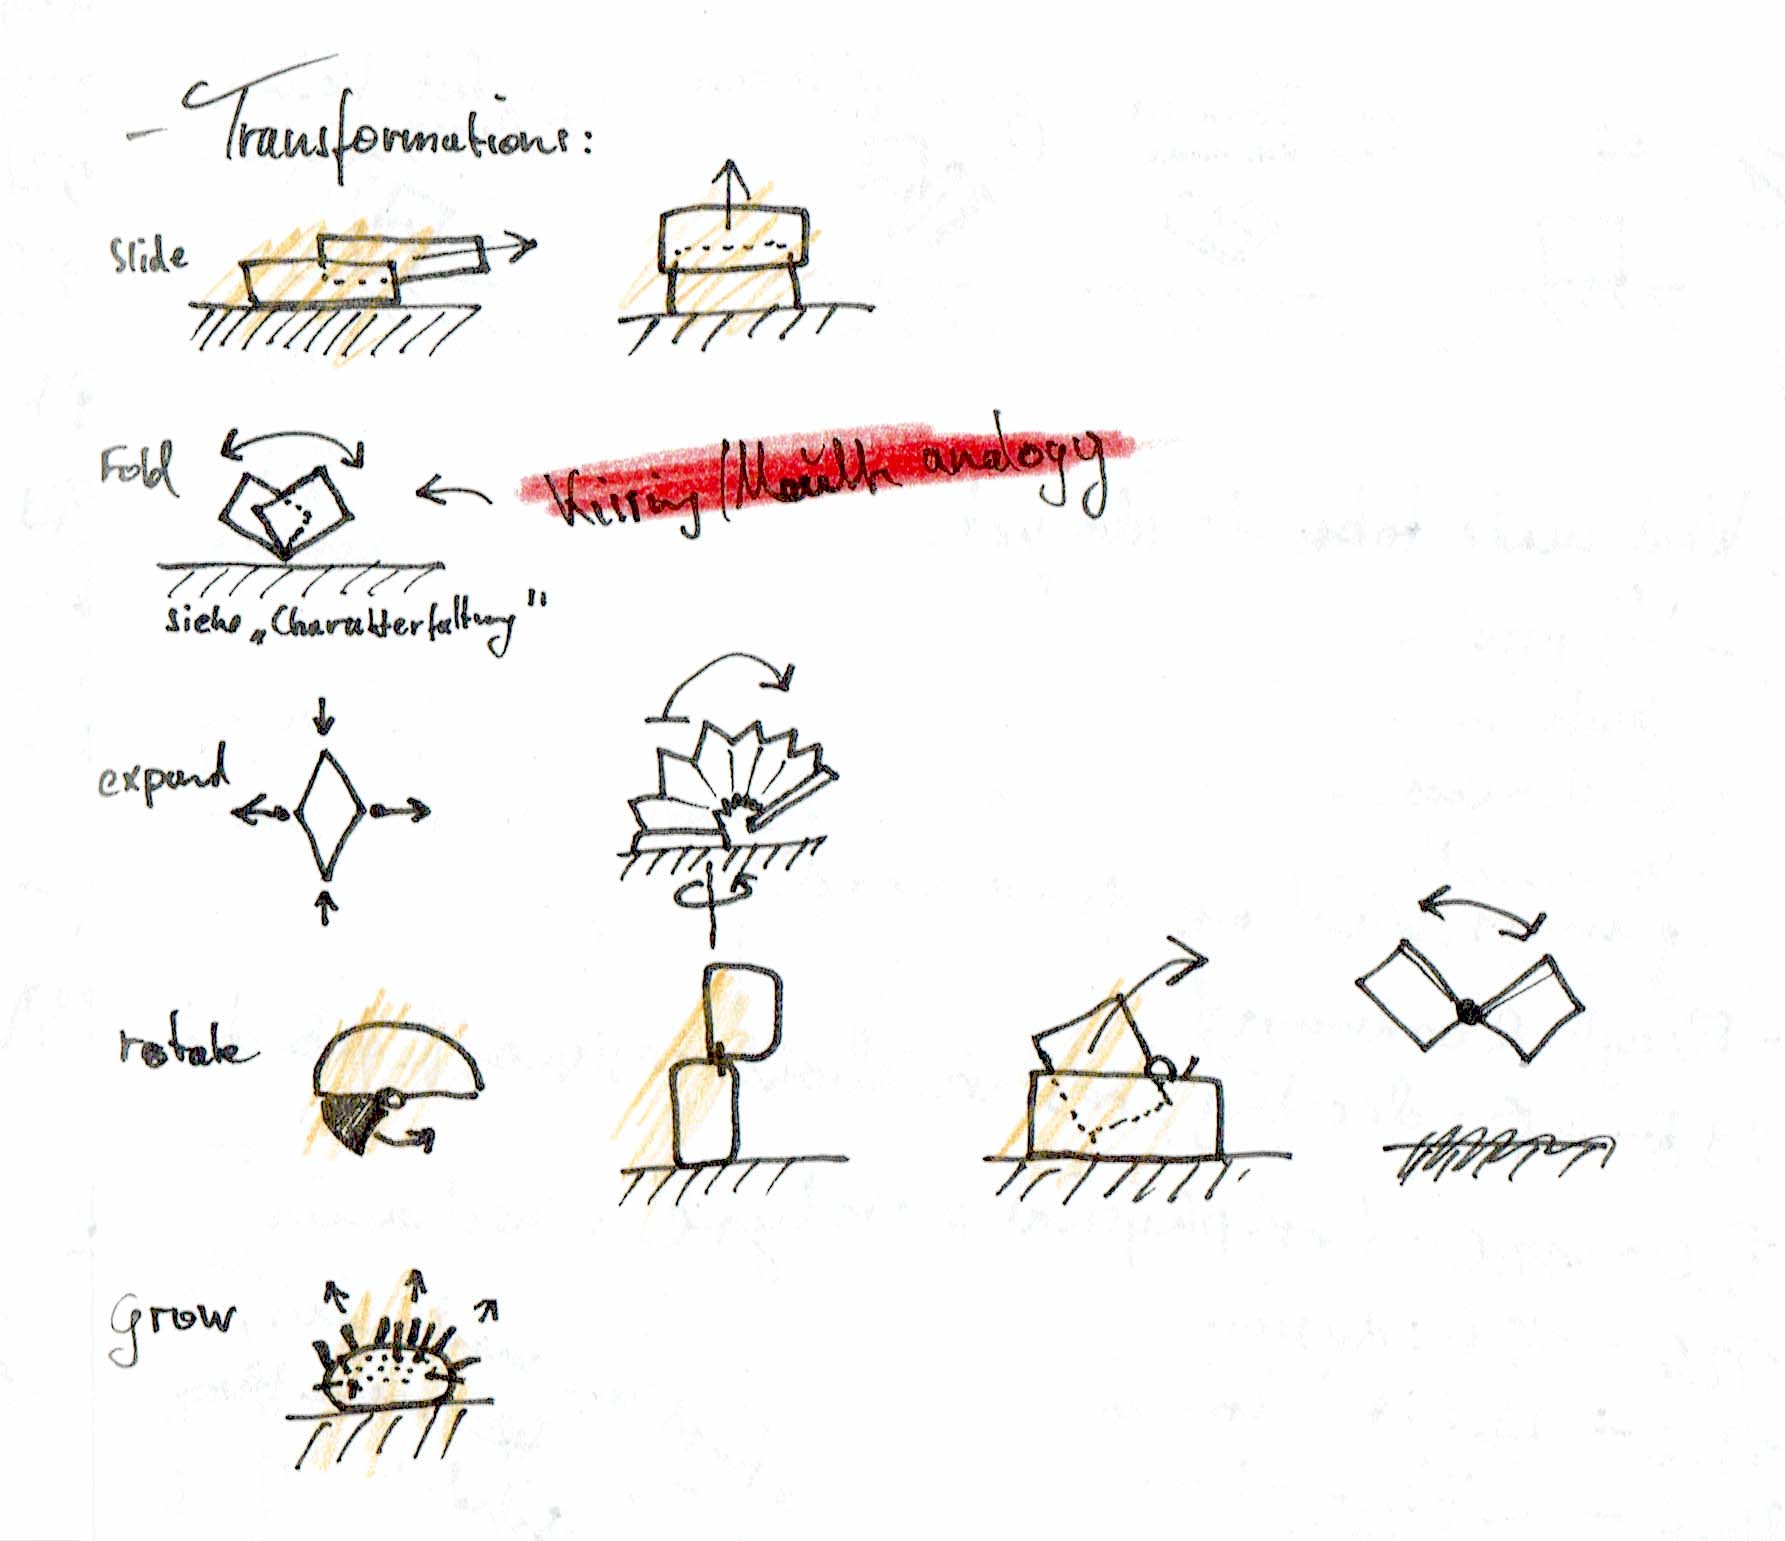 - Transformations:
Slide
Fold
Kissing/Mouth analogy
siehe „Charakterfaltung"
expand
rotate
grow